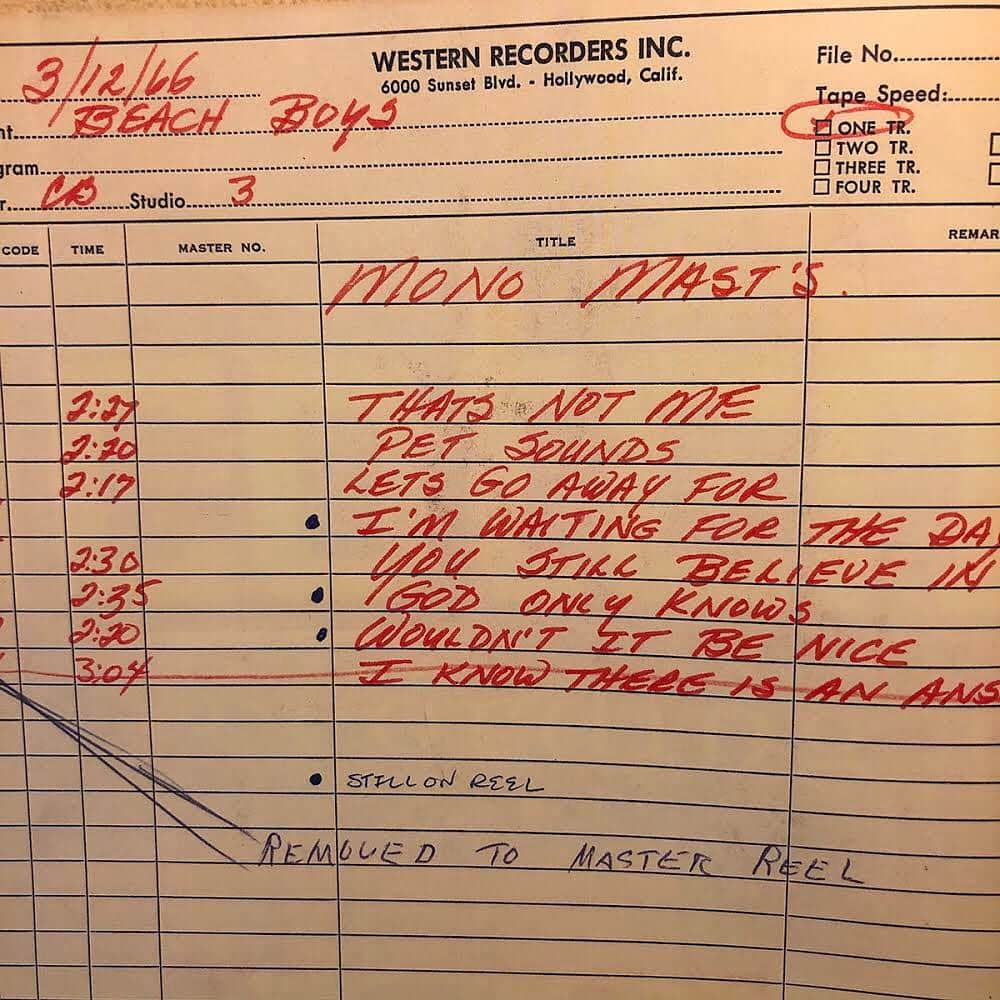 3/12/66
WESTERN RECORDERS INC.
6000 Sunset Blvd. - Hollywood, Calif.
File No.
Tape Speed:
nt. BEACH BOYS
ONE TR.
TWO TR.
gram
THREE TR.
r. CB Studio 3
FOUR TR.
CODE TIME MASTER NO. TITLE REMAR
MONO MAST'S.
2:27 THATS NOT ME
2:20 PET SOUNDS
2:17 LETS GO AWAY FOR
• I'M WAITING FOR THE DA
2:30 YOU STILL BELIEVE IN
2:35 • GOD ONLY KNOWS
2:20 • WOULDN'T IT BE NICE
3:04 I KNOW THERE IS AN ANS
• STILL ON REEL
REMOVED TO MASTER REEL